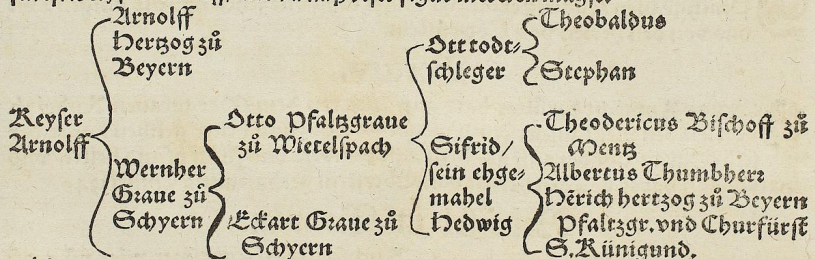 Keyser
Arnolff
Arnolff
Hertzog zů
Beyern
Wernher
Graue zů
Schyern
Otto Pfaltzgraue
zů Wietelspach
Eckart Graue zů
Schyern
Ott todt⸗
schleger
Sifrid/
sein ehge⸗
mahel
Hedwig
Theobaldus
Stephan
Theodericus Bischoff zů
Mentz
Albertus Thumbherr
Hērich hertzog zů Beyern
Pfaltzgr. vnd Churfürst
S. Künigund.